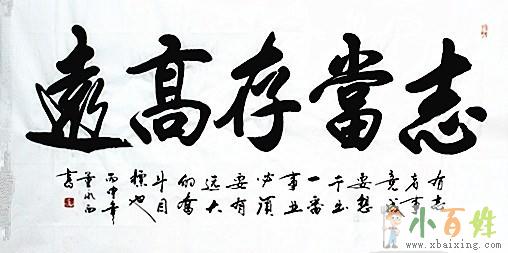 志當存高遠
有志
者事
竟成
要想
干出
一番
事业
必须
要有
远大
的奋
斗目
标也
丙申年
書
小百姓
www.xbaixing.com